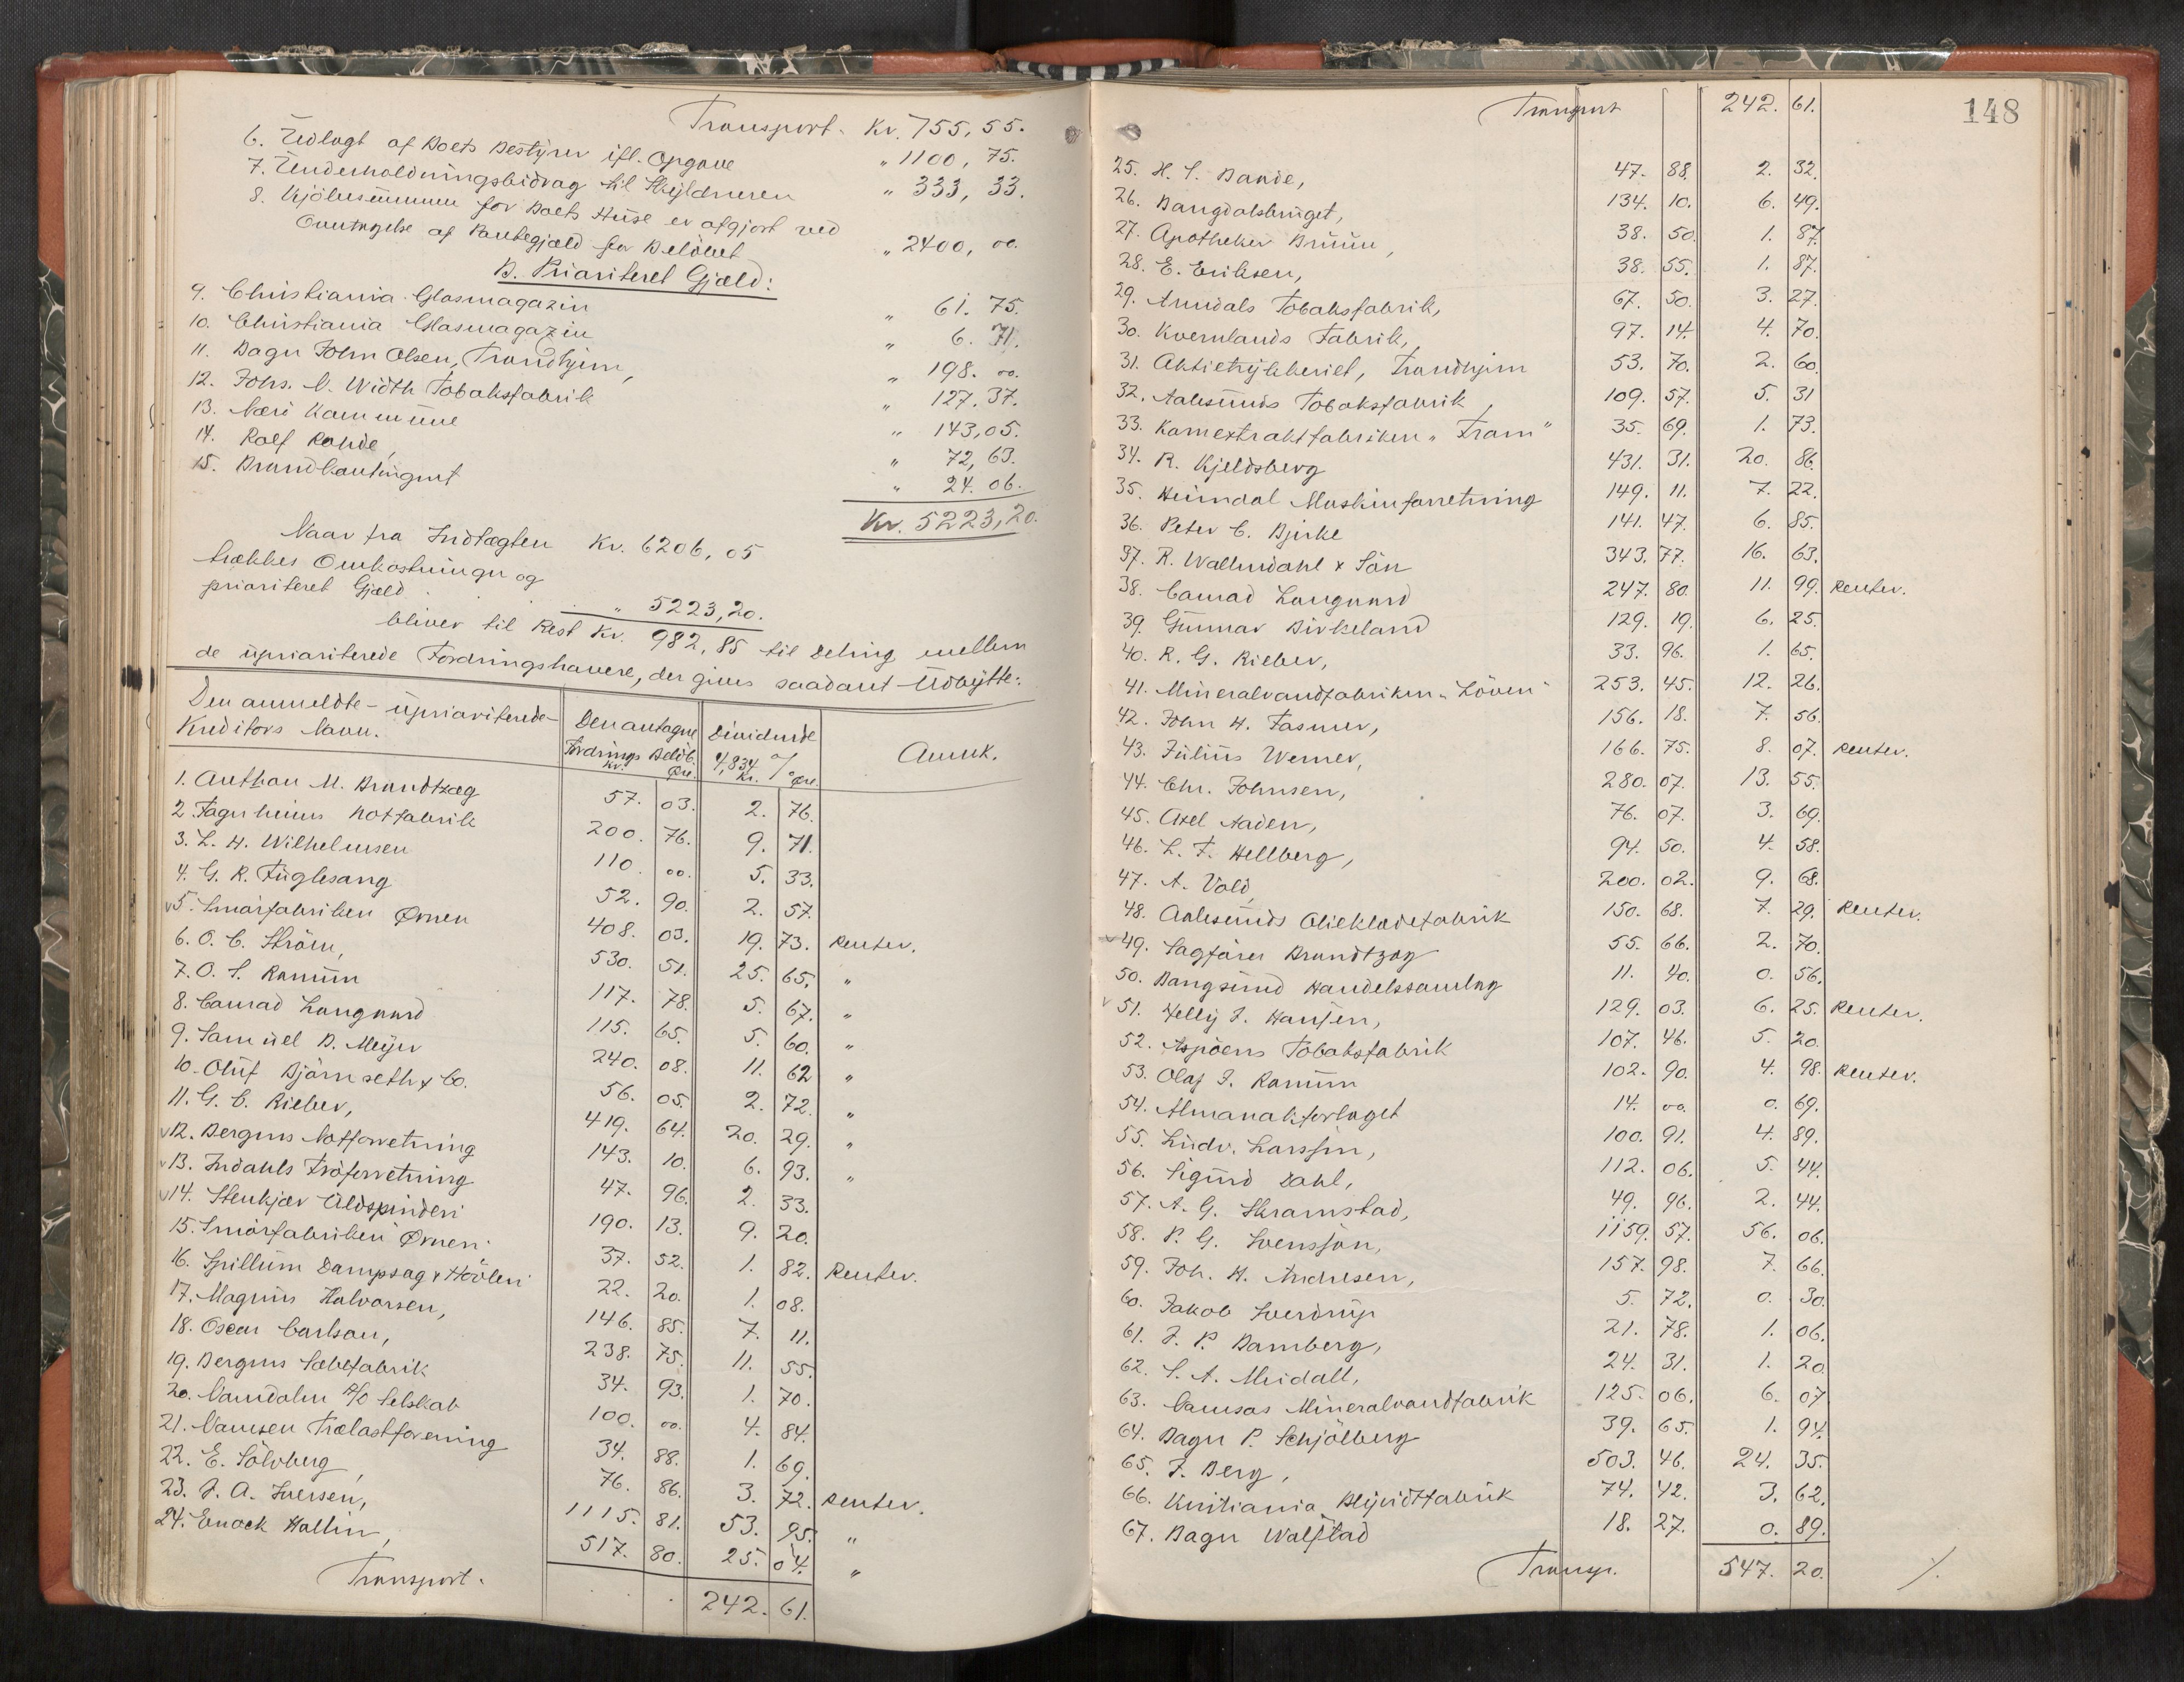 Transport. Kr. 755,55.
6. Udlagt af Boets Bestyrer ifl. Opgave " 1100,75.
7. Underholdningsbidrag til Skyldneren " 333,33.
8. Kjöbesummen for Boets Huse er afgjort ved
Overtagelse af Pantegjæld for Belöbet " 2400,00.
B. Prioriteret Gjæld:
9. Christiania Glasmagazin " 61.75.
10. Christiania Glasmagazin " 6.71.
11. Bager John Olsen, Trondhjem, " 198.00.
12. Johs. N. Width Tobaksfabrik " 127.37.
13. Næri Kommune " 143,05.
14. Rolf Rohde, " 72,63.
15. Brandkontingent " 24.06.
Kr. 5223,20.
Naar fra Indtægten Kr. 6206,05
trækkes Omkostninger og
prioriteret Gjæld " 5223,20.
bliver til Rest Kr. 982,85 til Deling mellem
de uprioriterede Fordringshavere, der gives saadant Udbytte:
Den anmeldte – uprioriterede – Kreditors Navn. Den antagne Fordrings Belöb. Kr. Øre. Dividende 4,834 % Kr. Øre. Anmk.
1. Anthon M. Brandtzæg 57. 03. 2. 76.
2. Fagerheims Notfabrik 200. 76. 9. 71.
3. L. H. Wilhelmsen 110. 00. 5. 33.
4. G. R. Fuglesang 52. 90. 2. 57.
v5. Smörfabriken Ørnen 408. 03. 19. 73. Renter.
6. O. C. Ström, 530. 51. 25. 65. "
7. O. S. Ramm 117. 78. 5. 67. "
8. Conrad Langaard 115. 65. 5. 60. "
9. Samuel B. Meyer 240. 08. 11. 62 "
10. Oluf Björnseth & Co. 56. 05. 2. 72. "
11. G. C. Rieber, 419. 64. 20. 29. "
v12. Bergens Notforretning 143. 10. 6. 93. "
v13. Indahls Tröforretning 47. 96. 2. 33.
v14. Stenkjær Uldspinderi 190. 13. 9. 20.
15. Smörfabriken Ørnen 37. 52. 1. 82. Renter.
16. Spillum Dampsag & Hövleri 22. 20. 1. 08.
17. Magnus Halvorsen, 146. 85. 7. 11.
18. Oscar Carlson, 238. 75. 11. 55.
19. Bergens Sæbefabrik 34. 93. 1. 70.
20. Namdalen A/O Selskab 100. 00. 4. 84.
21. Namsen Trælastforening 34. 88. 1. 69.
22. E. Sölvberg, 76. 86. 3. 72. Renter.
23. J. A. Iversen, 1115. 81. 53. 95. "
24. Enock Hallin, 517. 80. 25. 04. "
Transport. 242. 61.
148
Transport 242. 61.
25. H. S. Bande, 47. 88. 2. 32.
26. Bangdalsbruget, 134. 10. 6. 49.
27. Apotheker Bruun, 38. 50. 1. 87.
28. E. Eriksen, 38. 55. 1. 87.
29. Arendals Tobaksfabrik, 67. 50. 3. 27.
30. Kvernlands Fabrik, 97. 14. 4. 70.
31. Aktietrykkeriet, Trondhjem 53. 70. 2. 60.
32. Aalesunds Tobaksfabrik, 109. 57. 5. 31
33. Kornextraktfabriken "Fram" 35. 69. 1. 73.
34. R. Kjeldsberg 431. 31. 20. 86.
35. Heimdal Maskinforretning 149. 11. 7. 22.
36. Peter C. Bjerke 141. 47. 6. 85.
37. R. Wallendahl & Sön 343. 77. 16. 63.
38. Conrad Langaard 247. 80. 11. 99. Renter.
39. Gunnar Birkeland 129. 19. 6. 25.
40. R. G. Rieber, 33. 96. 1. 65.
41. Mineralvandfabriken "Löven" 253. 45. 12. 26.
42. John H. Fasmer, 156. 18. 7. 56.
43. Julius Werner, 166. 75. 8. 07. Renter.
44. Chr. Johnsen, 280. 07. 13. 55.
45. Axel Aaden, 76. 07. 3. 69.
46. L. F. Hellberg, 94. 50. 4. 58.
47. A. Vold 200. 02. 9. 68.
48. Aalesunds Oliekledefabrik 150. 68. 7. 29. Renter.
v49. Sagförer Brandtzæg 55. 66. 2. 70.
50. Bangsund Handelssamlag 11. 40. 0. 56.
v 51. Helly J. Hansen, 129. 03. 6. 25. Renter.
52. Aspöens Tobaksfabrik 107. 46. 5. 20.
53. Olaf J. Ramm 102. 90. 4. 98. Renter.
54. Almanakforlaget 14. 00. 0. 69.
55. Ludv. Larssen, 100. 91. 4. 89.
56. Sigurd Dahl, 112. 06. 5. 44.
57. A. G. Skramstad, 49. 96. 2. 44.
58. P. G. Svensson, 1159. 57. 56. 06.
59. Joh. H. Andresen, 157. 98. 7. 66.
60. Jakob Sverdrup 5. 72. 0. 30.
61. J. P. Bamberg, 21. 78. 1. 06.
62. S. A. Meidall, 24. 31. 1. 20.
63. Namsos Mineralvandfabrik 125. 06. 6. 07
64. Bager P. Schjölberg 39. 65. 1. 94.
65. J. Berg, 503. 46. 24. 35.
66. Kristiania Blyvidtfabrik 74. 42. 3. 62.
67. Bager Walstad 18. 27. 0. 89.
Transp. 547. 20. /.